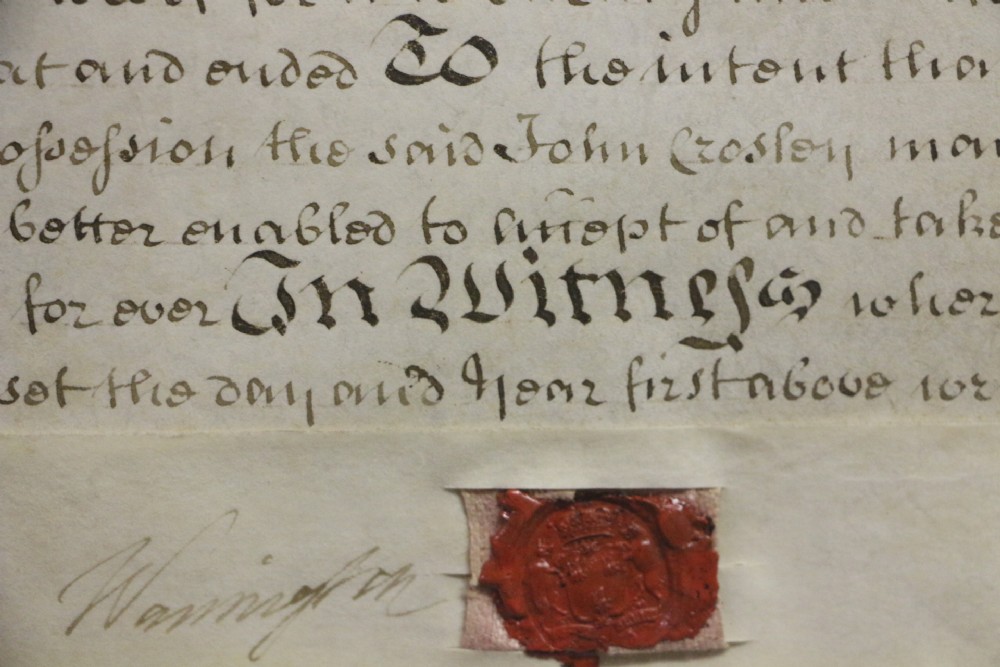 at and ended TO the intent tha
ossession the said John Crosley may
better enabled to accept of and take
for ever In Witness wher
set the day and Year first above wr
Warrington